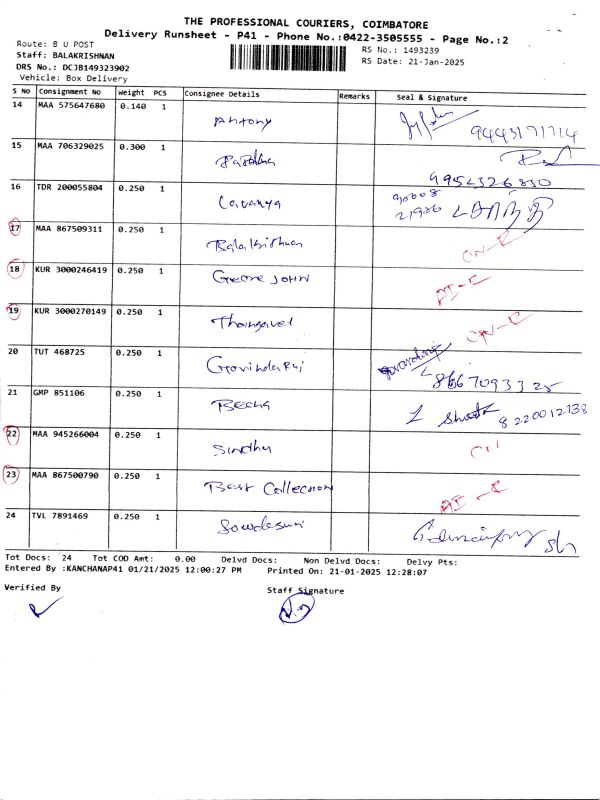 THE PROFESSIONAL COURIERS, COIMBATORE
Delivery Runsheet - P41 - Phone No.:0422-3505555 - Page No.:2
Route: B U POST
Staff: BALAKRISHNAN
DRS No.: DCJB149323902
Vehicle: Box Delivery
RS No.: 1493239
RS Date: 21-Jan-2025
S No Consignment No Weight PCS Consignee Details Remarks Seal & Signature
14 MAA 575647680 0.140 1 Antony 9443171714
15 MAA 706329025 0.300 1
9952326830
16 TDR 200055804 0.250 1 Lavanya
17 MAA 867509311 0.250 1 Balakrithnan CN-R
18 KUR 3000246419 0.250 1 George JOHN AI-R
19 KUR 3000270149 0.250 1 Thangavel CN-R
20 TUT 468725 0.250 1 Govindaraj
21 GMP 851106 0.250 1 8220012138
22 MAA 945266004 0.250 1 Sindhu CN
23 MAA 867500790 0.250 1 Best Collection AI-R
24 TVL 7891469 0.250 1
Tot Docs: 24 Tot COD Amt: 0.00 Delvd Docs: Non Delvd Docs: Delvy Pts:
Entered By :KANCHANAP41 01/21/2025 12:00:27 PM Printed On: 21-01-2025 12:28:07
Verified By
Staff Signature